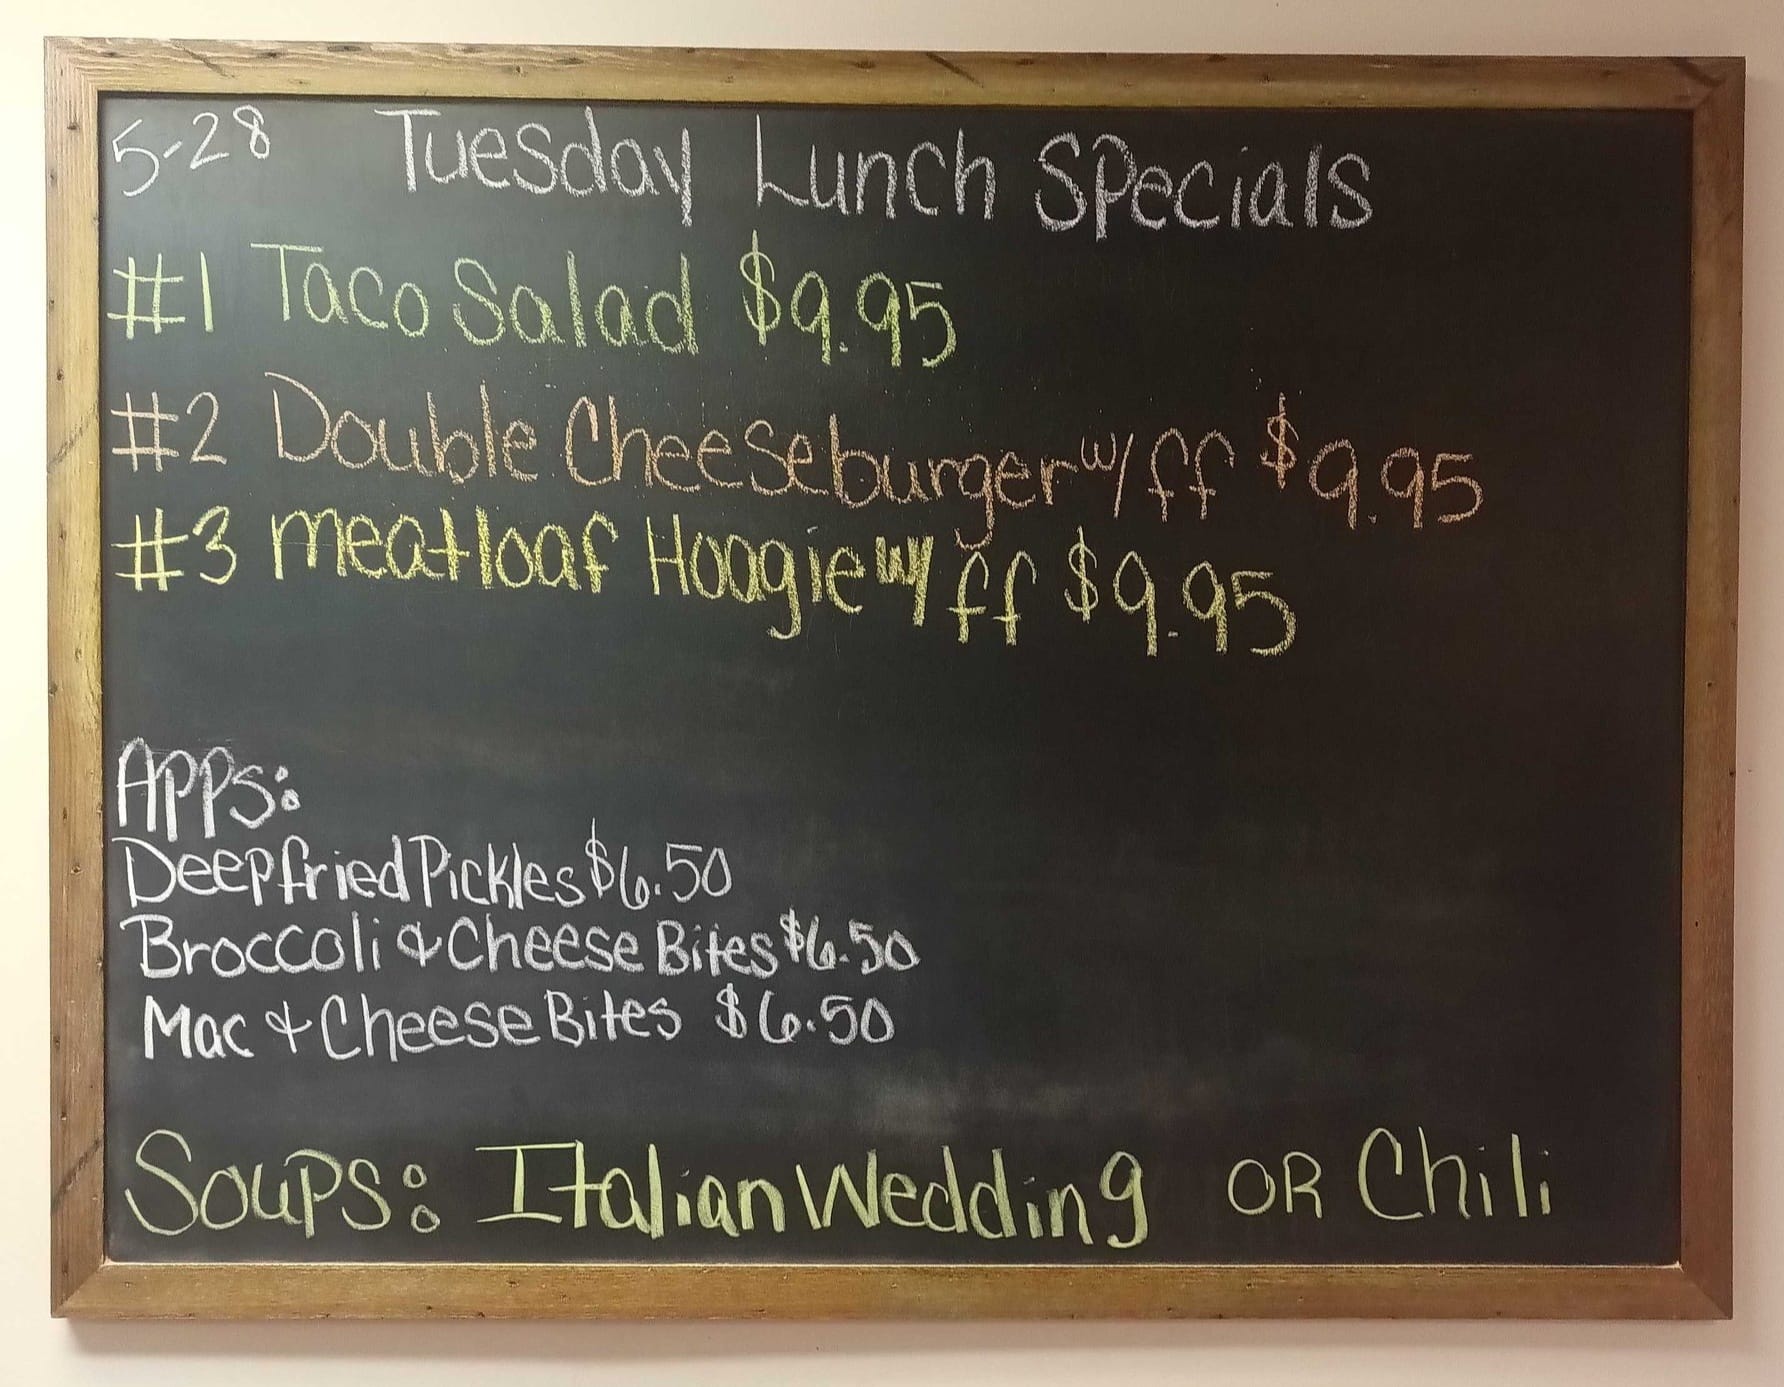 5-28 Tuesday Lunch Specials
#1 Taco Salad $9.95
#2 Double Cheeseburger w/ ff $9.95
#3 Meatloaf Hoagie w/ ff $9.95
Apps:
Deepfried Pickles $6.50
Broccoli & Cheese Bites $6.50
Mac & Cheese Bites $6.50
Soups: Italian Wedding OR Chili